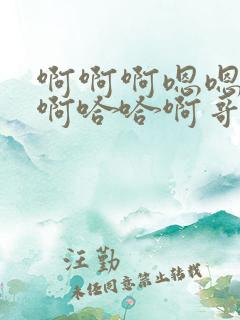 啊啊啊嗯嗯
啊哈哈啊哥
汪勤
未经同意禁止转载